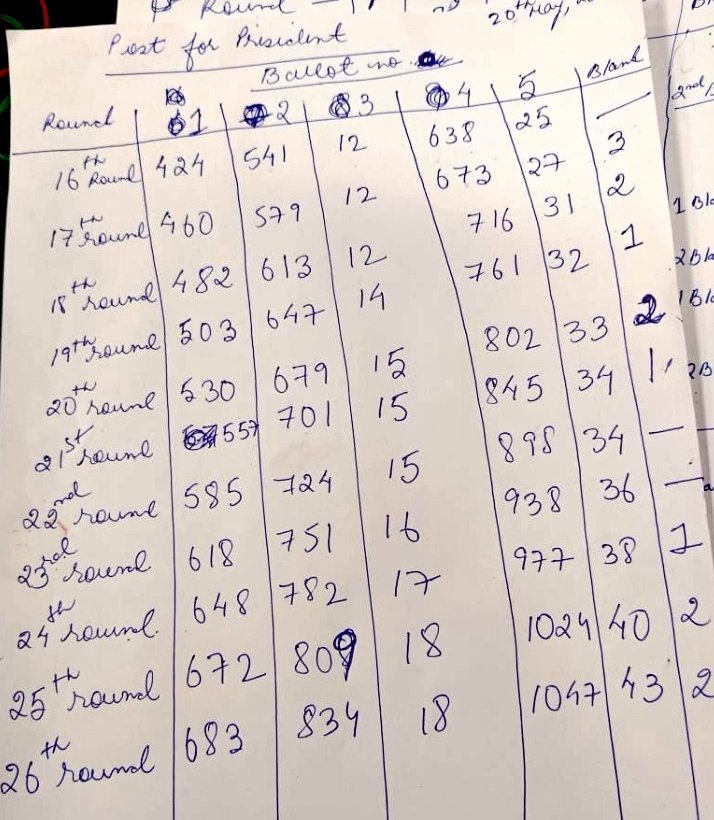 Round
20th May,
Post for President
Ballot no.
Round 1 2 3 4 5 Blank
16th Round 424 541 12 638 25 —
17th round 460 579 12 673 27 3
18th round 482 613 12 716 31 2
19th round 503 647 14 761 32 1
20th round 530 679 15 802 33 2
21st round 557 701 15 845 34 1
22nd round 585 724 15 898 34 —
23rd round 618 751 16 938 36 —
24th round. 648 782 17 977 38 1
25th round 672 809 18 1024 40 2
26th round 683 834 18 1047 43 2
2nd
1 Bla
2 Bla
1 Bla
2B